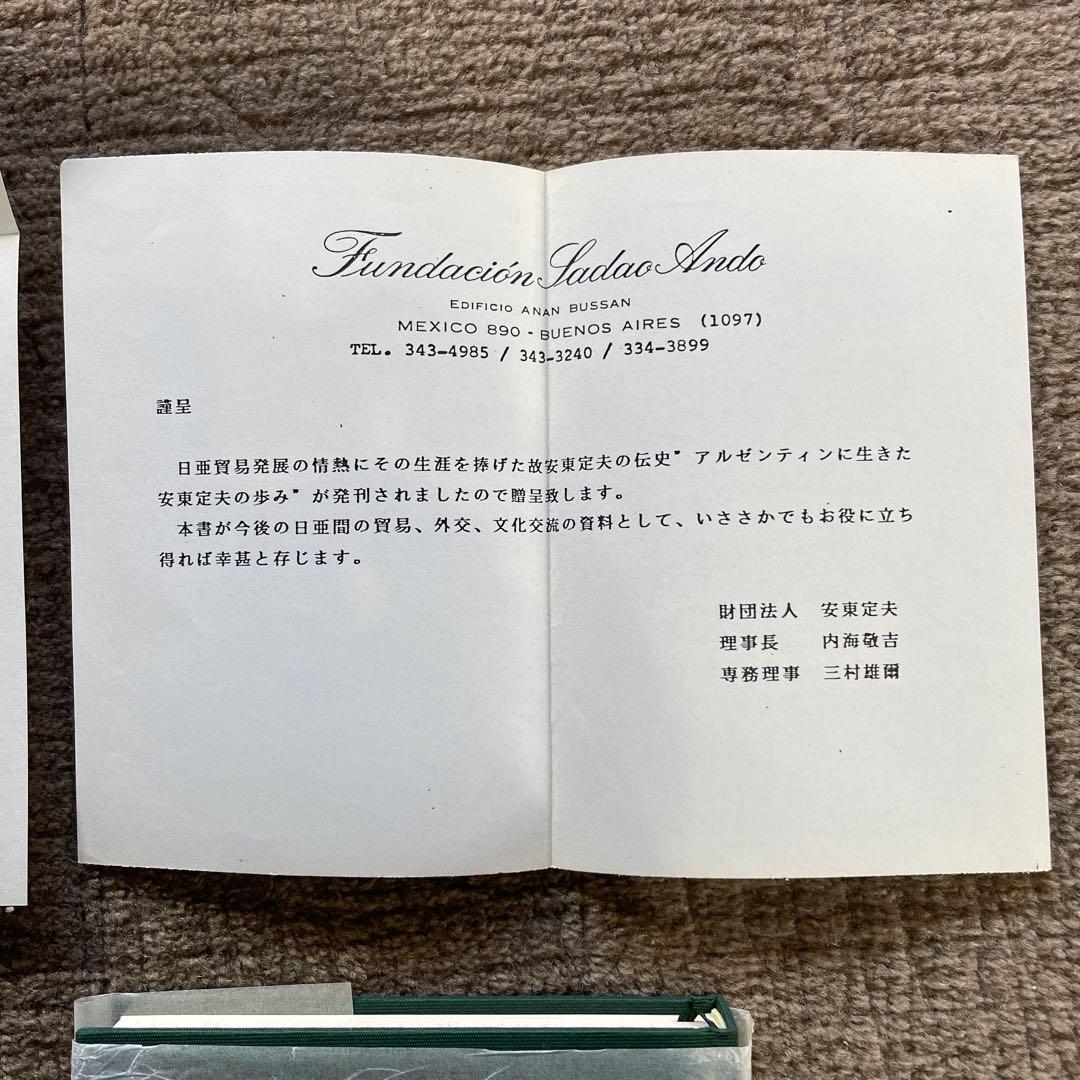 Fundación Sadao Ando
EDIFICIO ANAN BUSSAN
MEXICO 890 - BUENOS AIRES (1097)
TEL. 343-4985 / 343-3240 / 334-3899
謹呈
日亜貿易発展の情熱にその生涯を捧げた故安東定夫の伝史”アルゼンティンに生きた
安東定夫の歩み”が発刊されましたので贈呈致します。
本書が今後の日亜間の貿易、外交、文化交流の資料として、いささかでもお役に立ち
得れば幸甚と存じます。
財団法人 安東定夫
理事長 内海敬吉
専務理事 三村雄爾